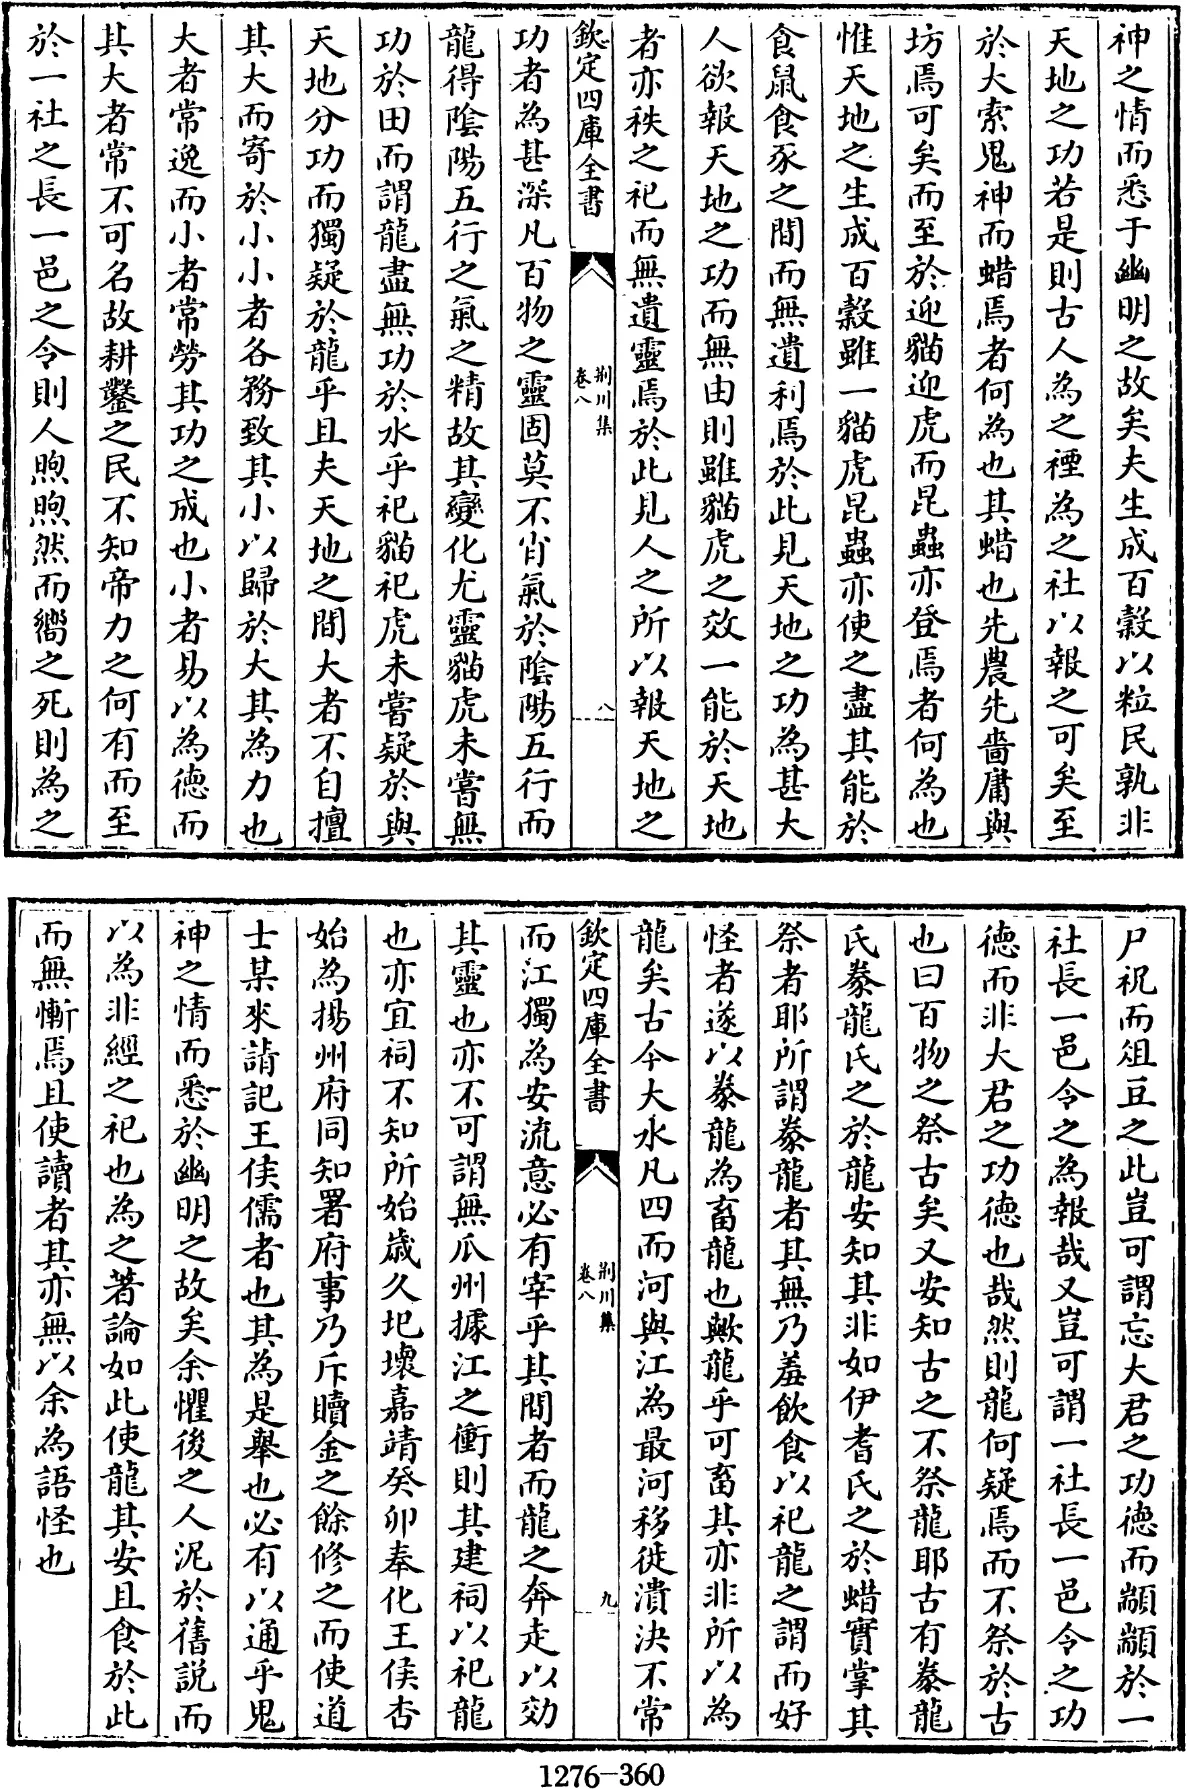 神之情而悉于幽明之故矣夫生成百穀以粒民孰非
天地之功若是則古人為之禋為之社以報之可矣至
於大索鬼神而蜡焉者何為也其蜡也先農先嗇庸與
坊焉可矣而至於迎貓迎虎而昆蟲亦登焉者何為也
惟天地之生成百穀雖一貓虎昆蟲亦使之盡其能於
食鼠食豕之間而無遺利焉於此見天地之功為甚大
人欲報天地之功而無由則雖貓虎之效一能於天地
者亦秩之祀而無遺靈焉於此見人之所以報天地之
欽定四庫全書
荆川集
卷八
八
功者為甚深凡百物之靈固莫不肖氣於陰陽五行而
龍得陰陽五行之氣之精故其變化尤靈貓虎未嘗無
功於田而謂龍盡無功於水乎祀貓祀虎未嘗疑於與
天地分功而獨疑於龍乎且夫天地之間大者不自擅
其大而寄於小小者各務致其小以歸於大其為力也
大者常逸而小者常勞其功之成也小者易以為德而
其大者常不可名故耕鑿之民不知帝力之何有而至
於一社之長一邑之令則人煦煦然而嚮之死則為之
尸祝而俎豆之此豈可謂忘大君之功德而顓顓於一
社長一邑令之為報哉又豈可謂一社長一邑令之功
德而非大君之功德也哉然則龍何疑焉而不祭於古
也曰百物之祭古矣又安知古之不祭龍耶古有豢龍
氏豢龍氏之於龍安知其非如伊耆氏之於蜡實掌其
祭者耶所謂豢龍者其無乃羞飲食以祀龍之謂而好
怪者遂以豢龍為畜龍也歟龍乎可畜其亦非所以為
龍矣古今大水凡四而河與江為最河移徙潰決不常
欽定四庫全書
荆川集
卷八
九
而江獨為安流意必有宰乎其間者而龍之奔走以効
其靈也亦不可謂無瓜州據江之衝則其建祠以祀龍
也亦宜祠不知所始歲久圮壞嘉靖癸卯奉化王侯杏
始為揚州府同知署府事乃斥贖金之餘修之而使道
士某來請記王侯儒者也其為是舉也必有以通乎鬼
神之情而悉於幽明之故矣余懼後之人泥於舊説而
以為非經之祀也為之著論如此使龍其安且食於此
而無慚焉且使讀者其亦無以余為語怪也
1276-360